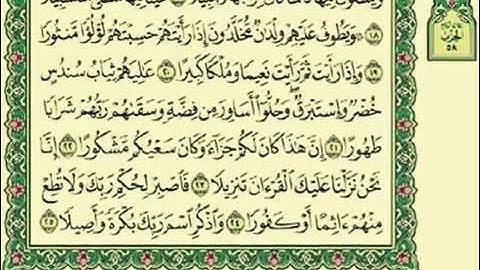 ۞ وَيَطُوفُ عَلَيْهِمْ وِلْدَٰنٌ مُّخَلَّدُونَ إِذَا رَأَيْتَهُمْ حَسِبْتَهُمْ لُؤْلُؤًا مَّنثُورًا
١٩ وَإِذَا رَأَيْتَ ثَمَّ رَأَيْتَ نَعِيمًا وَمُلْكًا كَبِيرًا ٢٠ عَٰلِيَهُمْ ثِيَابُ سُندُسٍ
خُضْرٌ وَإِسْتَبْرَقٌ ۖ وَحُلُّوٓا۟ أَسَاوِرَ مِن فِضَّةٍ وَسَقَىٰهُمْ رَبُّهُمْ شَرَابًا
طَهُورًا ٢١ إِنَّ هَٰذَا كَانَ لَكُمْ جَزَآءً وَكَانَ سَعْيُكُم مَّشْكُورًا ٢٢ إِنَّا
نَحْنُ نَزَّلْنَا عَلَيْكَ ٱلْقُرْءَانَ تَنزِيلًا ٢٣ فَٱصْبِرْ لِحُكْمِ رَبِّكَ وَلَا تُطِعْ
مِنْهُمْ ءَاثِمًا أَوْ كَفُورًا ٢٤ وَٱذْكُرِ ٱسْمَ رَبِّكَ بُكْرَةً وَأَصِيلًا ٢٥
الحزب
٥٨